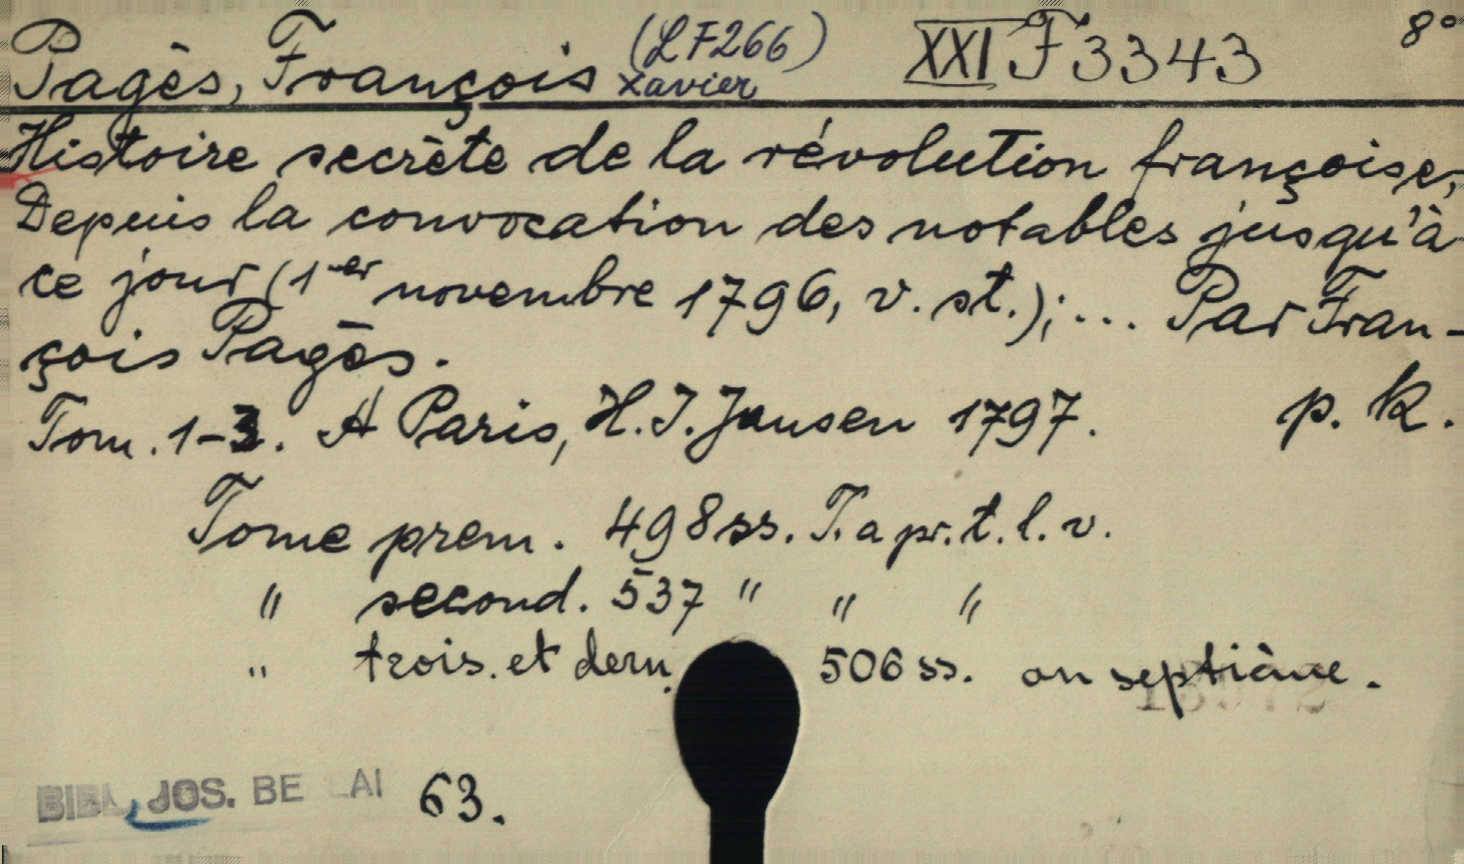 Pagès, François Xavier (LF266) XXI F 3343 8°
Histoire secrète de la révolution françoise,
Depuis la convocation des notables jusqu'à
ce jour (1er novembre 1796, v. st.); ... Par Fran-
çois Pagès.
Tom. 1-3. A Paris, H. J. Jansen 1797. p. k.
Tome prem. 498 ss. T. a pr. t. l. v.
" second. 537 " " "
" trois. et dern. 506 ss. an septième.
JOS. 63.